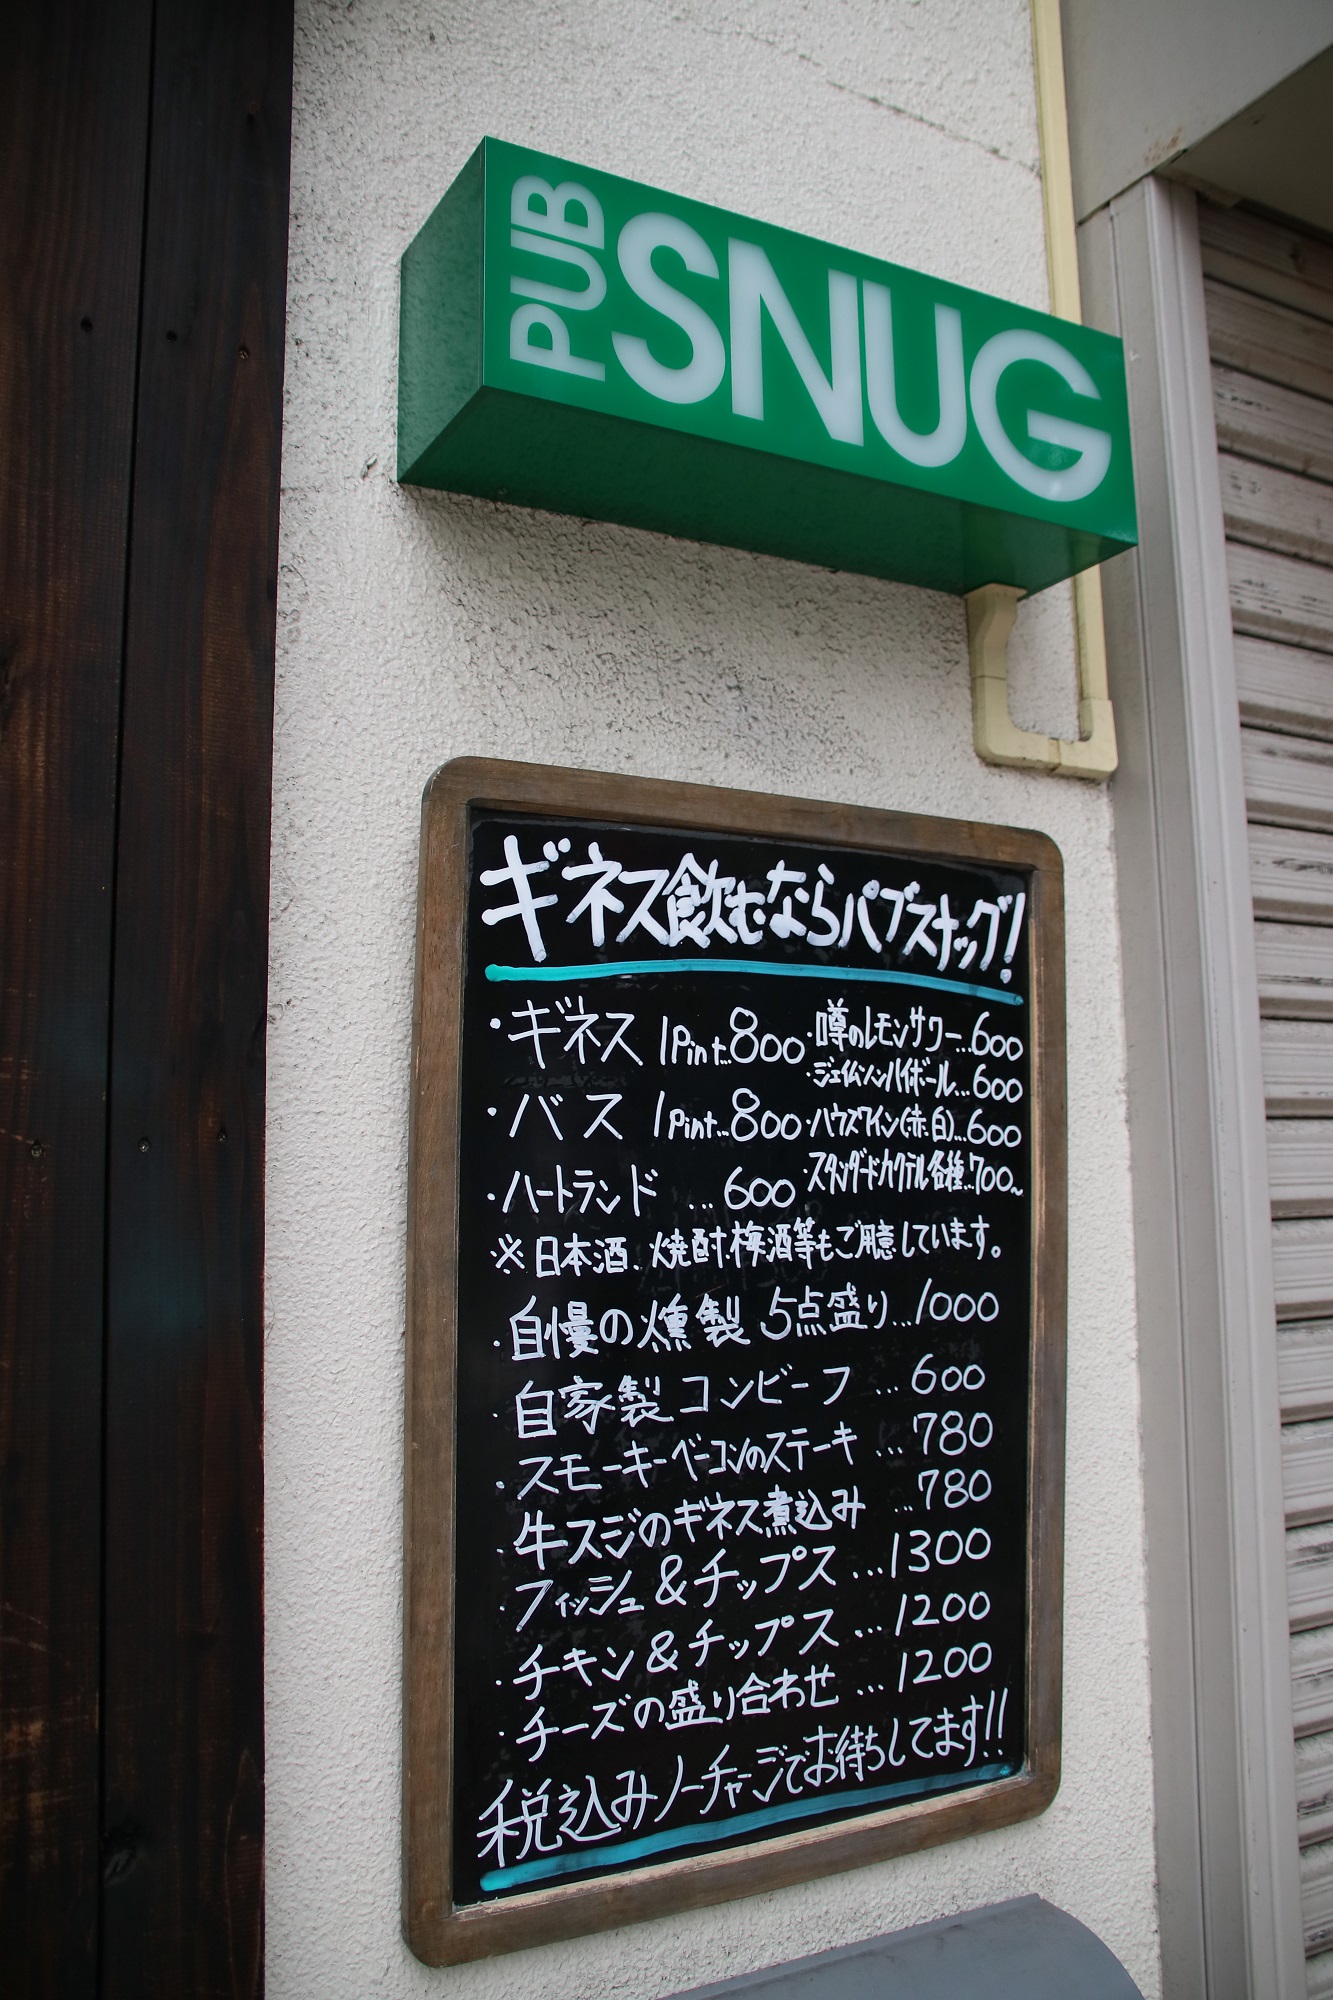 PUB SNUG
ギネス飲むならパブスナッグ!
・ギネス 1Pint...800
・バス 1Pint...800
・ハートランド ...600
・噂のレモンサワー...600
・ジェイムソンハイボール...600
・ハウスワイン(赤、白)...600
・スタンダードカクテル各種...700〜
※日本酒、焼酎、梅酒等もご用意しています。
・自慢の燻製 5点盛り...1000
・自家製コンビーフ ...600
・スモーキーベーコンのステーキ ...780
・牛スジのギネス煮込み ...780
・フィッシュ&チップス ...1300
・チキン&チップス ...1200
・チーズの盛り合わせ ...1200
税込みノーチャージでお待ちしてます!!